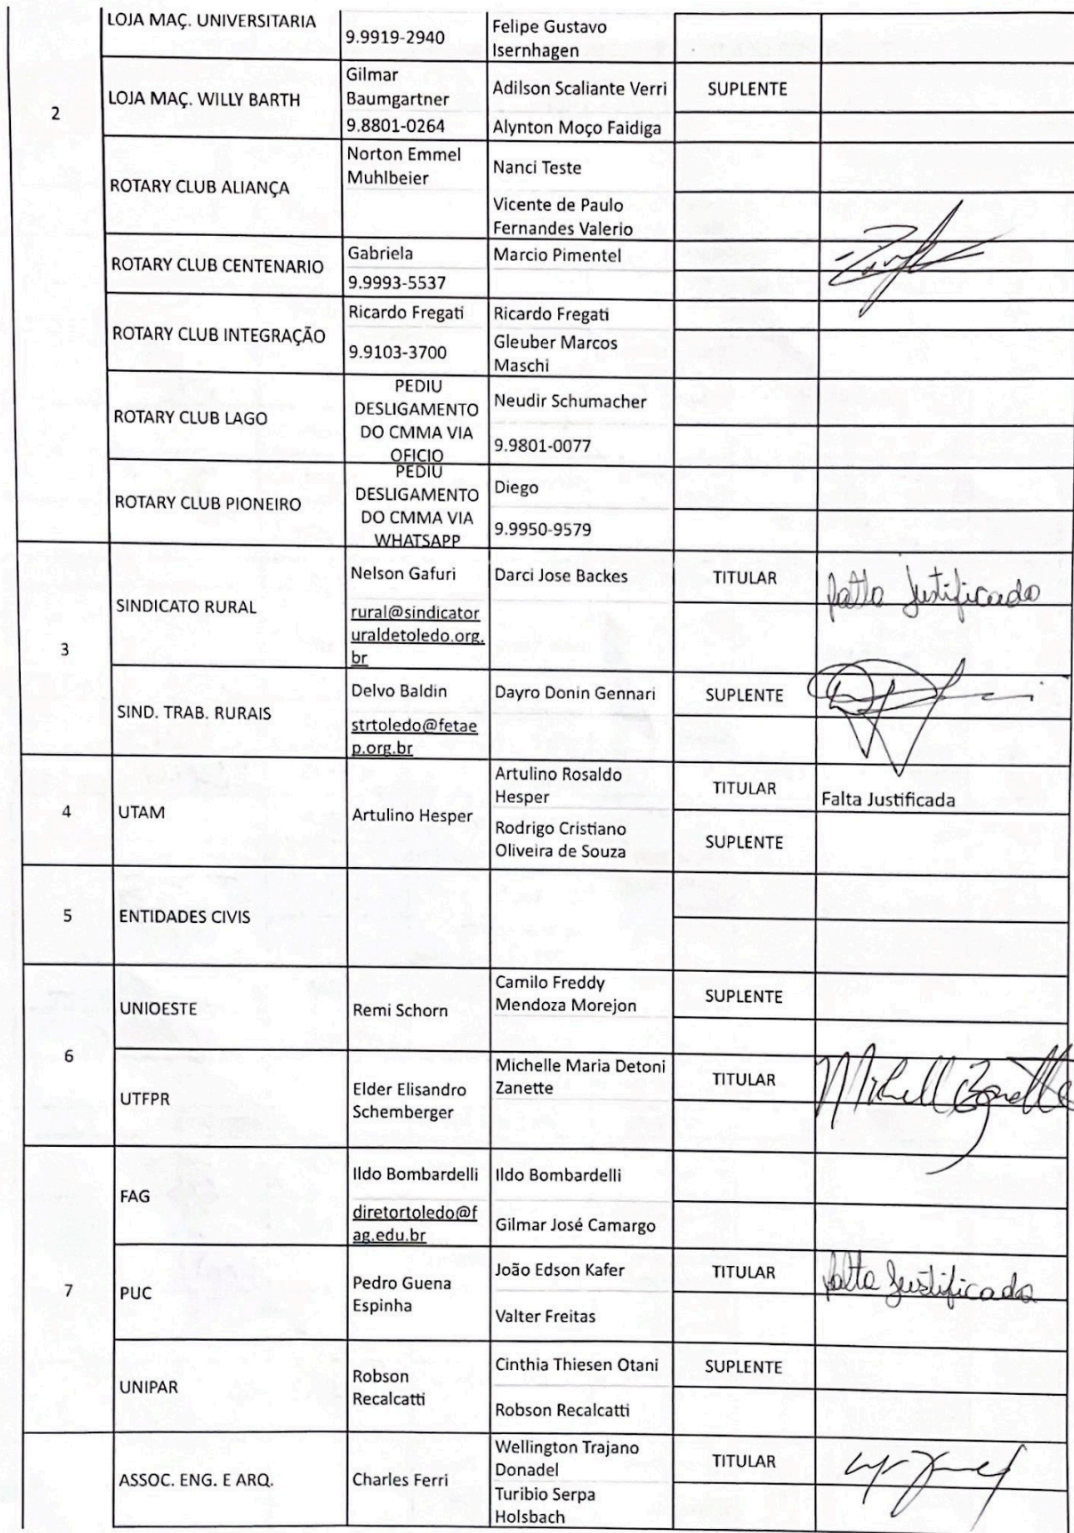 LOJA MAÇ. UNIVERSITARIA
9.9919-2940
Felipe Gustavo
Isernhagen
2
LOJA MAÇ. WILLY BARTH
Gilmar
Baumgartner
9.8801-0264
Adilson Scaliante Verri
SUPLENTE
Alynton Moço Faidiga
ROTARY CLUB ALIANÇA
Norton Emmel
Muhlbeier
Nanci Teste
Vicente de Paulo
Fernandes Valerio
ROTARY CLUB CENTENARIO
Gabriela
9.9993-5537
Marcio Pimentel
ROTARY CLUB INTEGRAÇÃO
Ricardo Fregati
9.9103-3700
Ricardo Fregati
Gleuber Marcos
Maschi
ROTARY CLUB LAGO
PEDIU
DESLIGAMENTO
DO CMMA VIA
OFICIO
Neudir Schumacher
9.9801-0077
ROTARY CLUB PIONEIRO
PEDIU
DESLIGAMENTO
DO CMMA VIA
WHATSAPP
Diego
9.9950-9579
3
SINDICATO RURAL
Nelson Gafuri
rural@sindicator
uraldetoledo.org.
br
Darci Jose Backes
TITULAR
falta Justificada
SIND. TRAB. RURAIS
Delvo Baldin
strtoledo@fetae
p.org.br
Dayro Donin Gennari
SUPLENTE
4
UTAM
Artulino Hesper
Artulino Rosaldo
Hesper
TITULAR
Falta Justificada
Rodrigo Cristiano
Oliveira de Souza
SUPLENTE
5
ENTIDADES CIVIS
6
UNIOESTE
Remi Schorn
Camilo Freddy
Mendoza Morejon
SUPLENTE
UTFPR
Elder Elisandro
Schemberger
Michelle Maria Detoni
Zanette
TITULAR
Michell Zanette
7
FAG
Ildo Bombardelli
diretortoledo@f
ag.edu.br
Ildo Bombardelli
Gilmar José Camargo
PUC
Pedro Guena
Espinha
João Edson Kafer
TITULAR
falta Justificada
Valter Freitas
UNIPAR
Robson
Recalcatti
Cinthia Thiesen Otani
SUPLENTE
Robson Recalcatti
ASSOC. ENG. E ARQ.
Charles Ferri
Wellington Trajano
Donadel
TITULAR
Turibio Serpa
Holsbach